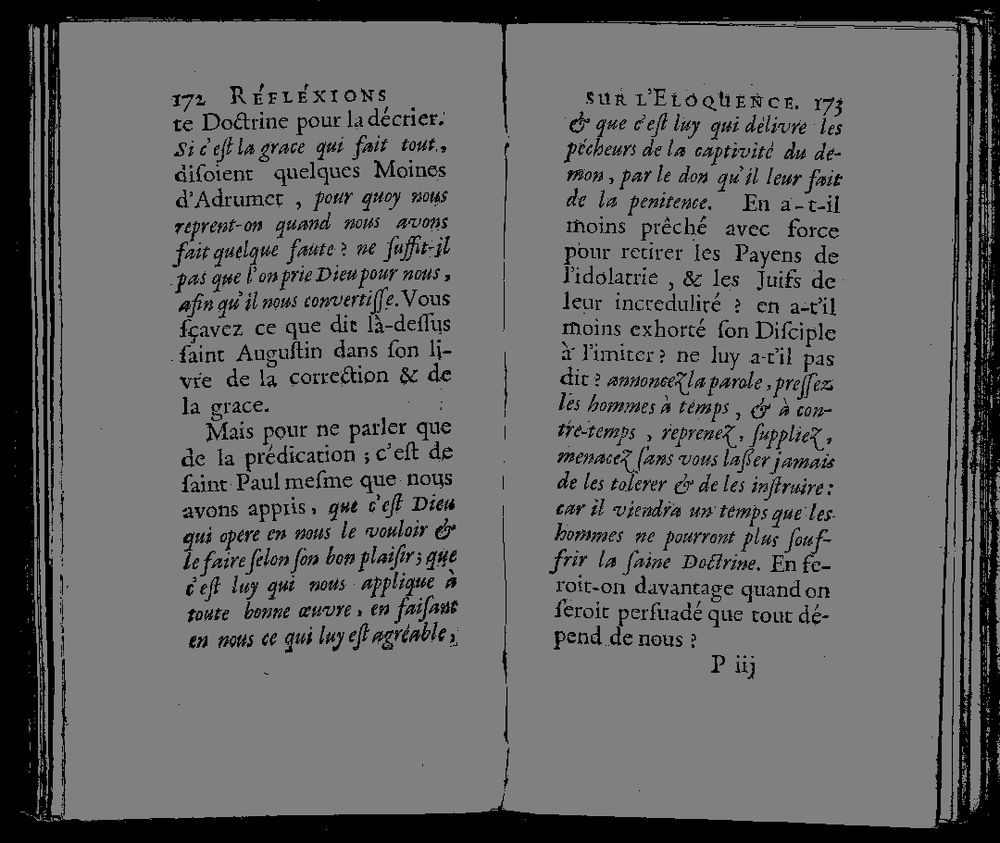 172 RÉFLÉXIONS
te Doctrine pour la décrier.
Si c'est la grace qui fait tout,
disoient quelques Moines
d'Adrumet, pour quoy nous
reprent-on quand nous avons
fait quelque faute ? ne suffit-il
pas que l'on prie Dieu pour nous,
afin qu'il nous convertisse. Vous
sçavez ce que dit là-dessus
saint Augustin dans son li-
vre de la correction & de
la grace.
Mais pour ne parler que
de la prédication ; c'est de
saint Paul mesme que nous
avons appris, que c'est Dieu
qui opere en nous le vouloir &
le faire selon son bon plaisir ; que
c'est luy qui nous applique à
toute bonne œuvre, en faisant
en nous ce qui luy est agréable,
SUR L'ELOQUENCE. 173
& que c'est luy qui délivre les
pécheurs de la captivité du de-
mon, par le don qu'il leur fait
de la penitence. En a-t-il
moins prêché avec force
pour retirer les Payens de
l'idolatrie, & les Juifs de
leur incredulité ? en a-t'il
moins exhorté son Disciple
à l'imiter ? ne luy a-t'il pas
dit ? annoncez la parole, pressez
les hommes à temps, & à con-
tre-temps, reprenez, suppliez,
menacez sans vous lasser jamais
de les tolerer & de les instruire :
car il viendra un temps que les
hommes ne pourront plus souf-
frir la saine Doctrine. En se-
roit-on davantage quand on
seroit persuadé que tout dé-
pend de nous ?
P iij